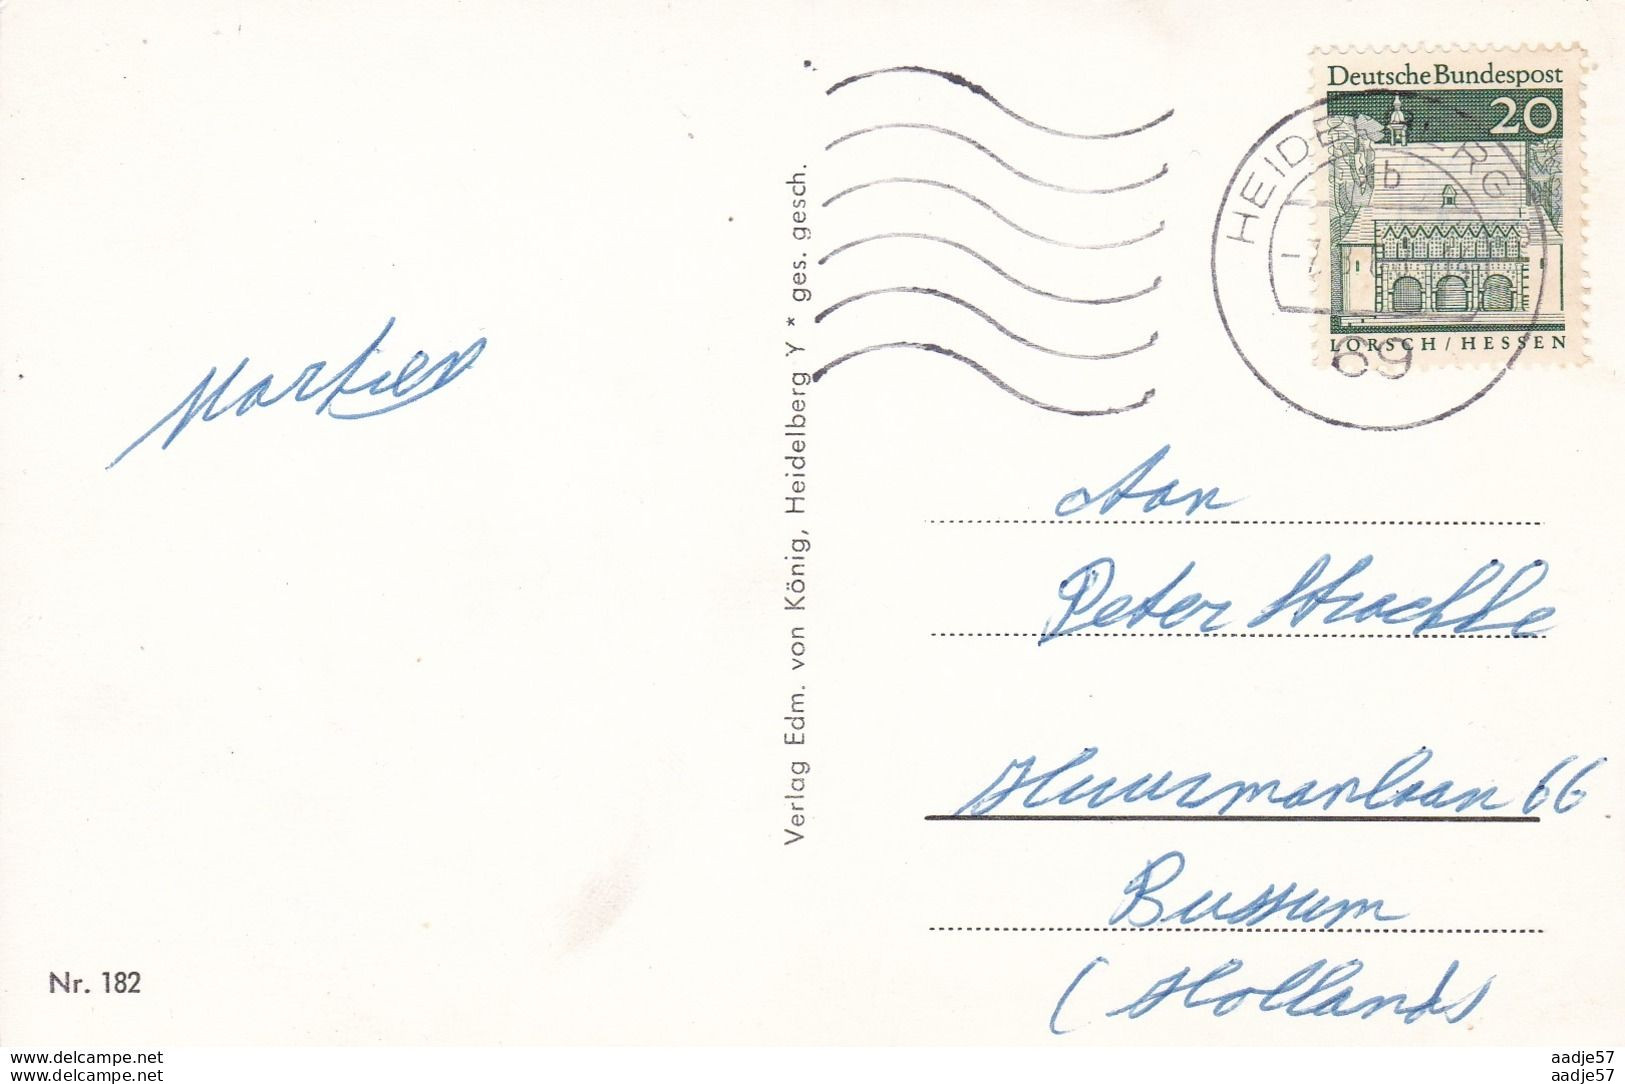 Deutsche Bundespost
20
LORSCH / HESSEN
HEIDELBERG
b
69
Verlag Edm. von König, Heidelberg Y * ges. gesch.
Aan
Peter
66
Bussum
(Holland)
Nr. 182
www.delcampe.net
aadje57
www.delcampe.net
aadje57